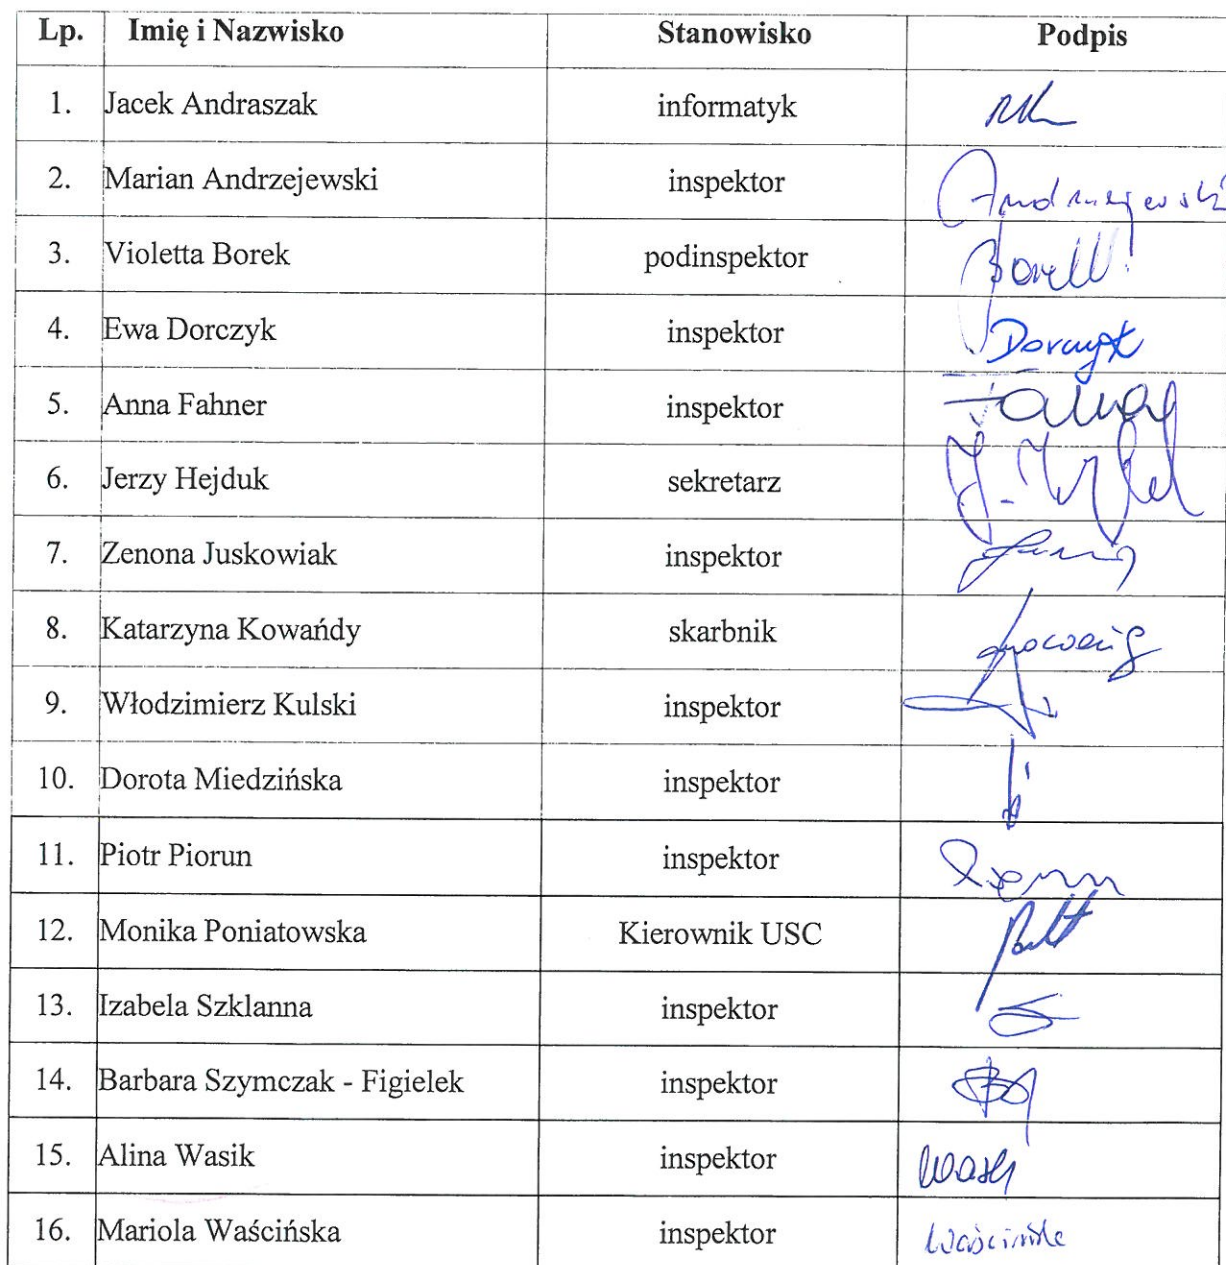 Lp. Imię i Nazwisko Stanowisko Podpis
1. Jacek Andraszak informatyk
2. Marian Andrzejewski inspektor Andrzejewski
3. Violetta Borek podinspektor
4. Ewa Dorczyk inspektor Dorczyk
5. Anna Fahner inspektor
6. Jerzy Hejduk sekretarz
7. Zenona Juskowiak inspektor
8. Katarzyna Kowańdy skarbnik
9. Włodzimierz Kulski inspektor
10. Dorota Miedzińska inspektor
11. Piotr Piorun inspektor
12. Monika Poniatowska Kierownik USC
13. Izabela Szklanna inspektor
14. Barbara Szymczak - Figielek inspektor
15. Alina Wasik inspektor
16. Mariola Waścińska inspektor